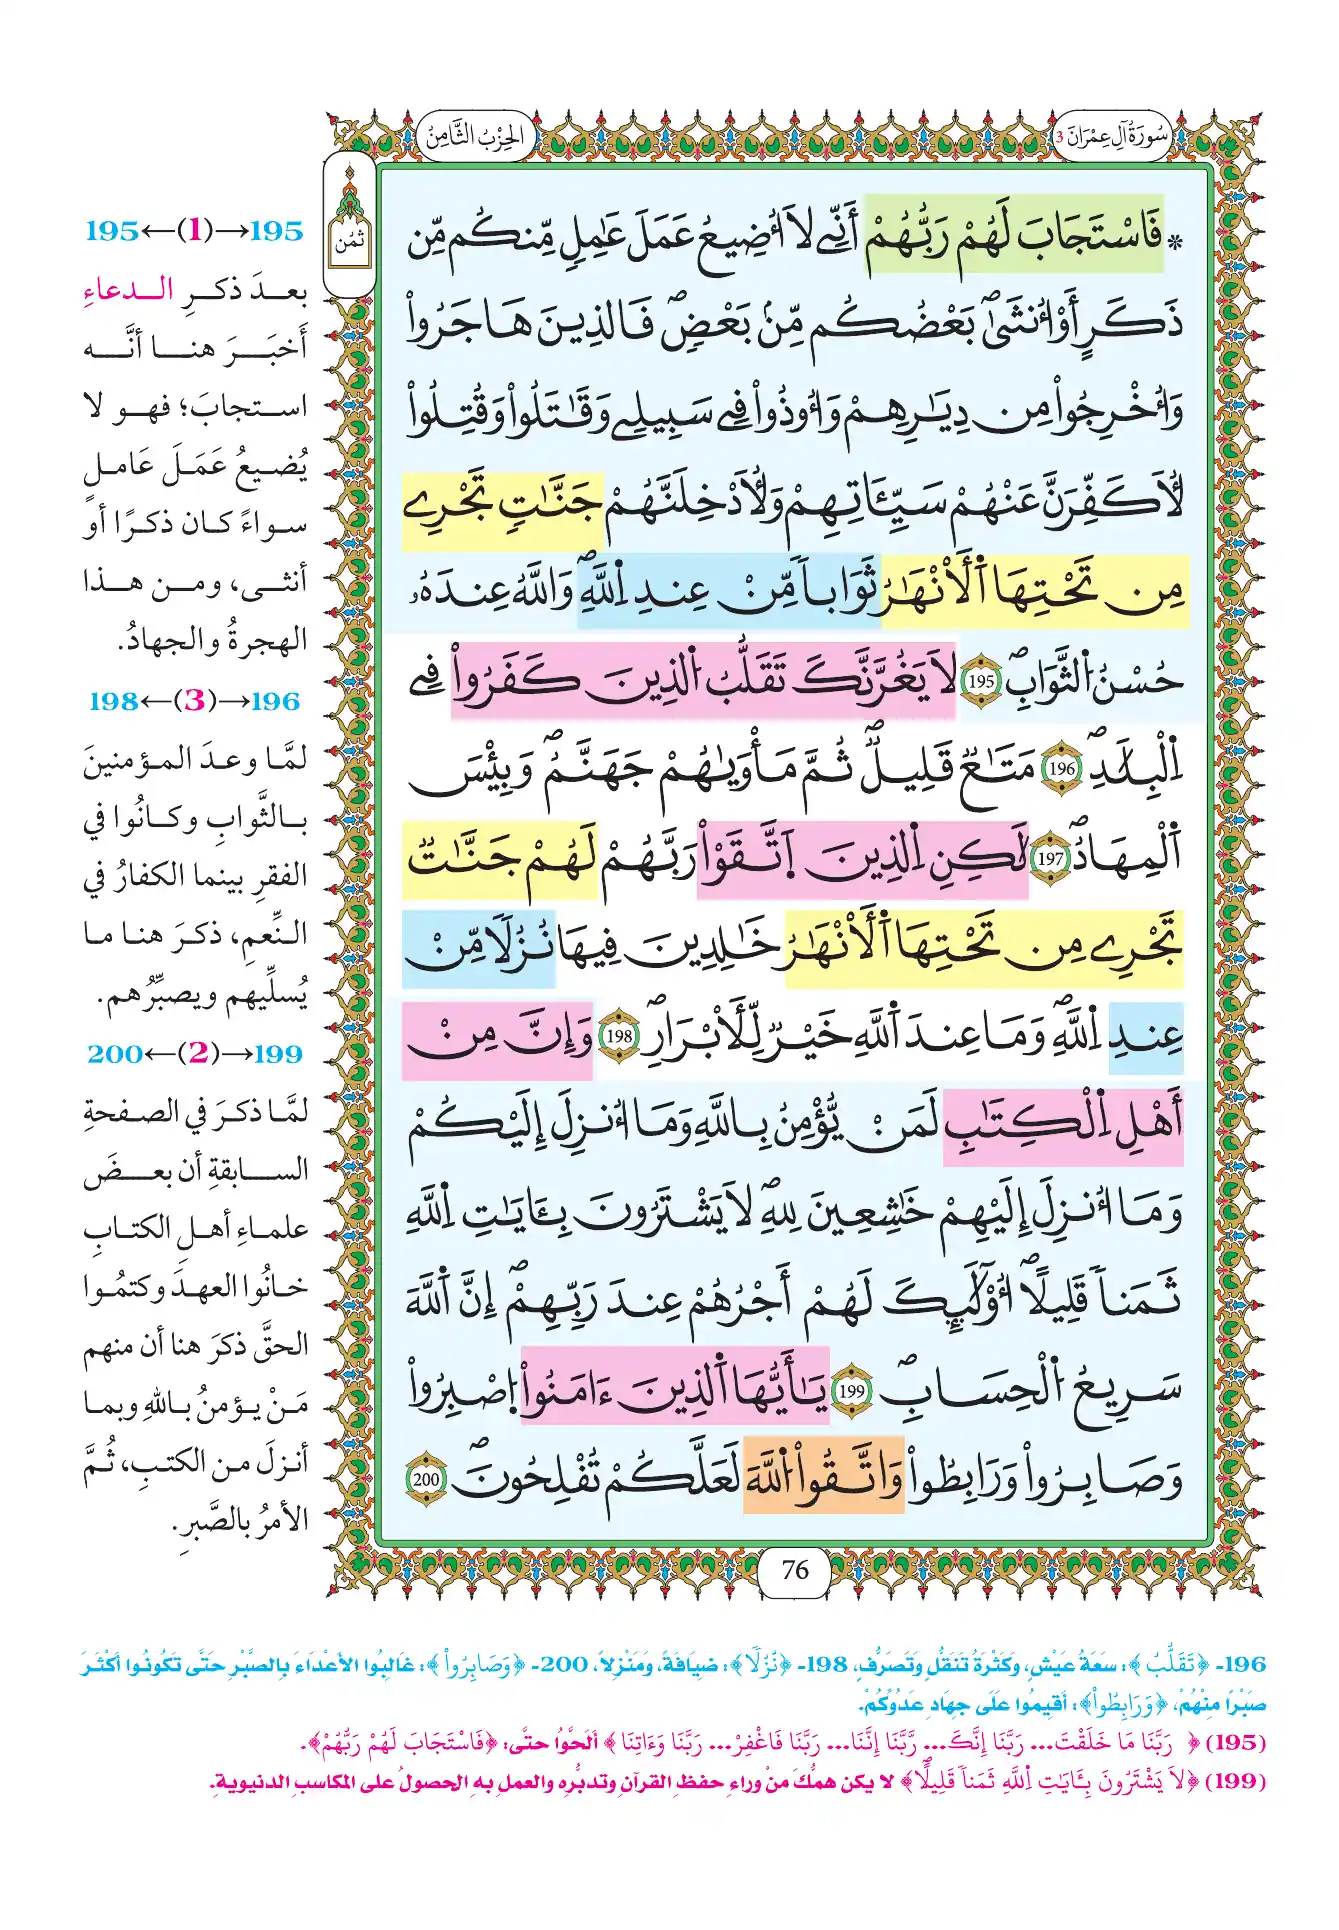 سُورَةُ آلِ عِمْرَانَ 3
الحِزْبُ الثَّامِنُ
ثُمُن
* فَاسْتَجَابَ لَهُمْ رَبُّهُمْ أَنِّے لَا أُضِيعُ عَمَلَ عَٰمِلٍ مِّنكُم مِّن
ذَكَرٍ أَوْ أُنثَىٰ بَعْضُكُم مِّنۢ بَعْضٖ فَالذِينَ هَاجَرُواْ
وَأُخْرِجُواْ مِن دِيَٰرِهِمْ وَأُوذُواْ فِے سَبِيلِے وَقَٰتَلُواْ وَقُتِلُواْ
لَأُكَفِّرَنَّ عَنْهُمْ سَيِّـَٔاتِهِمْ وَلَأُدْخِلَنَّهُمْ جَنَّٰتٖ تَجْرِے
مِن تَحْتِهَا اَلْأَنْهَٰرُ ثَوَاباٗ مِّنْ عِندِ اِللَّهِ وَاللَّهُ عِندَهُۥ
حُسْنُ اُلثَّوَابِ 195 لَا يَغُرَّنَّكَ تَقَلُّبُ اُلذِينَ كَفَرُواْ فِے
اِلْبِلَٰدِ 196 مَتَٰعٌ قَلِيلٌ ثُمَّ مَأْوَيٰهُمْ جَهَنَّمُ وَبِئْسَ
اَلْمِهَادُ 197 لَٰكِنِ اِلذِينَ اَتَّقَوْاْ رَبَّهُمْ لَهُمْ جَنَّٰتٌ
تَجْرِے مِن تَحْتِهَا اَلْأَنْهَٰرُ خَٰلِدِينَ فِيهَا نُزُلاٗ مِّنْ
عِندِ اِللَّهِ وَمَا عِندَ اَللَّهِ خَيْرٌ لِّلْأَبْرَارِ 198 وَإِنَّ مِنْ
أَهْلِ اِلْكِتَٰبِ لَمَنْ يُّؤْمِنُ بِاللَّهِ وَمَا أُنزِلَ إِلَيْكُمْ
وَمَا أُنزِلَ إِلَيْهِمْ خَٰشِعِينَ لِلهِ لَا يَشْتَرُونَ بِـَٔايَٰتِ اِللَّهِ
ثَمَناٗ قَلِيلاً أُوْلَٰٓئِكَ لَهُمْ أَجْرُهُمْ عِندَ رَبِّهِمْ إِنَّ اَللَّهَ
سَرِيعُ اُلْحِسَابِ 199 يَٰأَيُّهَا اَلذِينَ ءَامَنُواْ اُصْبِرُواْ
وَصَابِرُواْ وَرَابِطُواْ وَاتَّقُواْ اُللَّهَ لَعَلَّكُمْ تُفْلِحُونَ 200
76
195←(1)→195
بعدَ ذكرِ الدعاءِ
أَخبَرَ هنا أنَّه
استجابَ؛ فهو لا
يُضيعُ عَمَلَ عَاملٍ
سواءً كان ذكرًا أو
أنثى، ومن هذا
الهجرةُ والجهادُ.
198←(3)→196
لمَّا وعدَ المؤمنينَ
بالثَّوابِ وكانُوا في
الفقرِ بينما الكفارُ في
النِّعمِ، ذكرَ هنا ما
يُسلِّيهم ويصبِّرُهم.
200←(2)→199
لمَّا ذكرَ في الصفحةِ
السابقةِ أن بعضَ
علماءِ أهلِ الكتابِ
خانُوا العهدَ وكتمُوا
الحقَّ ذكرَ هنا أن منهم
مَنْ يؤمنُ باللهِ وبما
أنزلَ من الكتبِ، ثُمَّ
الأمرُ بالصَّبرِ.
196- ﴿تَقَلُّبُ﴾: سَعَةُ عَيْشِ، وَكَثْرَةُ تَنَقُّلِ وَتَصَرُّفِ، 198- ﴿نُزُلاً﴾: ضِيَافَةً، وَمَنْزِلاً، 200- ﴿وَصَابِرُواْ﴾: غَالِبُوا الأَعْدَاءَ بِالصَّبْرِ حَتَّى تَكُونُوا أَكْثَرَ
صَبْرًا مِنْهُمْ، ﴿وَرَابِطُواْ﴾: أَقِيمُوا عَلَى جِهَادِ عَدُوِّكُمْ.
(195) ﴿رَبَّنَا مَا خَلَقْتَ... رَبَّنَا إِنَّكَ... رَّبَّنَا إِنَّنَا... رَبَّنَا فَاغْفِرْ... رَبَّنَا وَءَاتِنَا﴾ ألَحُّوا حتَّى: ﴿فَاسْتَجَابَ لَهُمْ رَبُّهُمْ﴾.
(199) ﴿لَا يَشْتَرُونَ بِـَٔايَٰتِ اِللَّهِ ثَمَناٗ قَلِيلاً﴾ لا يكن همُّكَ منْ وراءِ حفظِ القرآنِ وتدبُّرِه والعملِ بهِ الحصولُ على المكاسبِ الدنيويةِ.